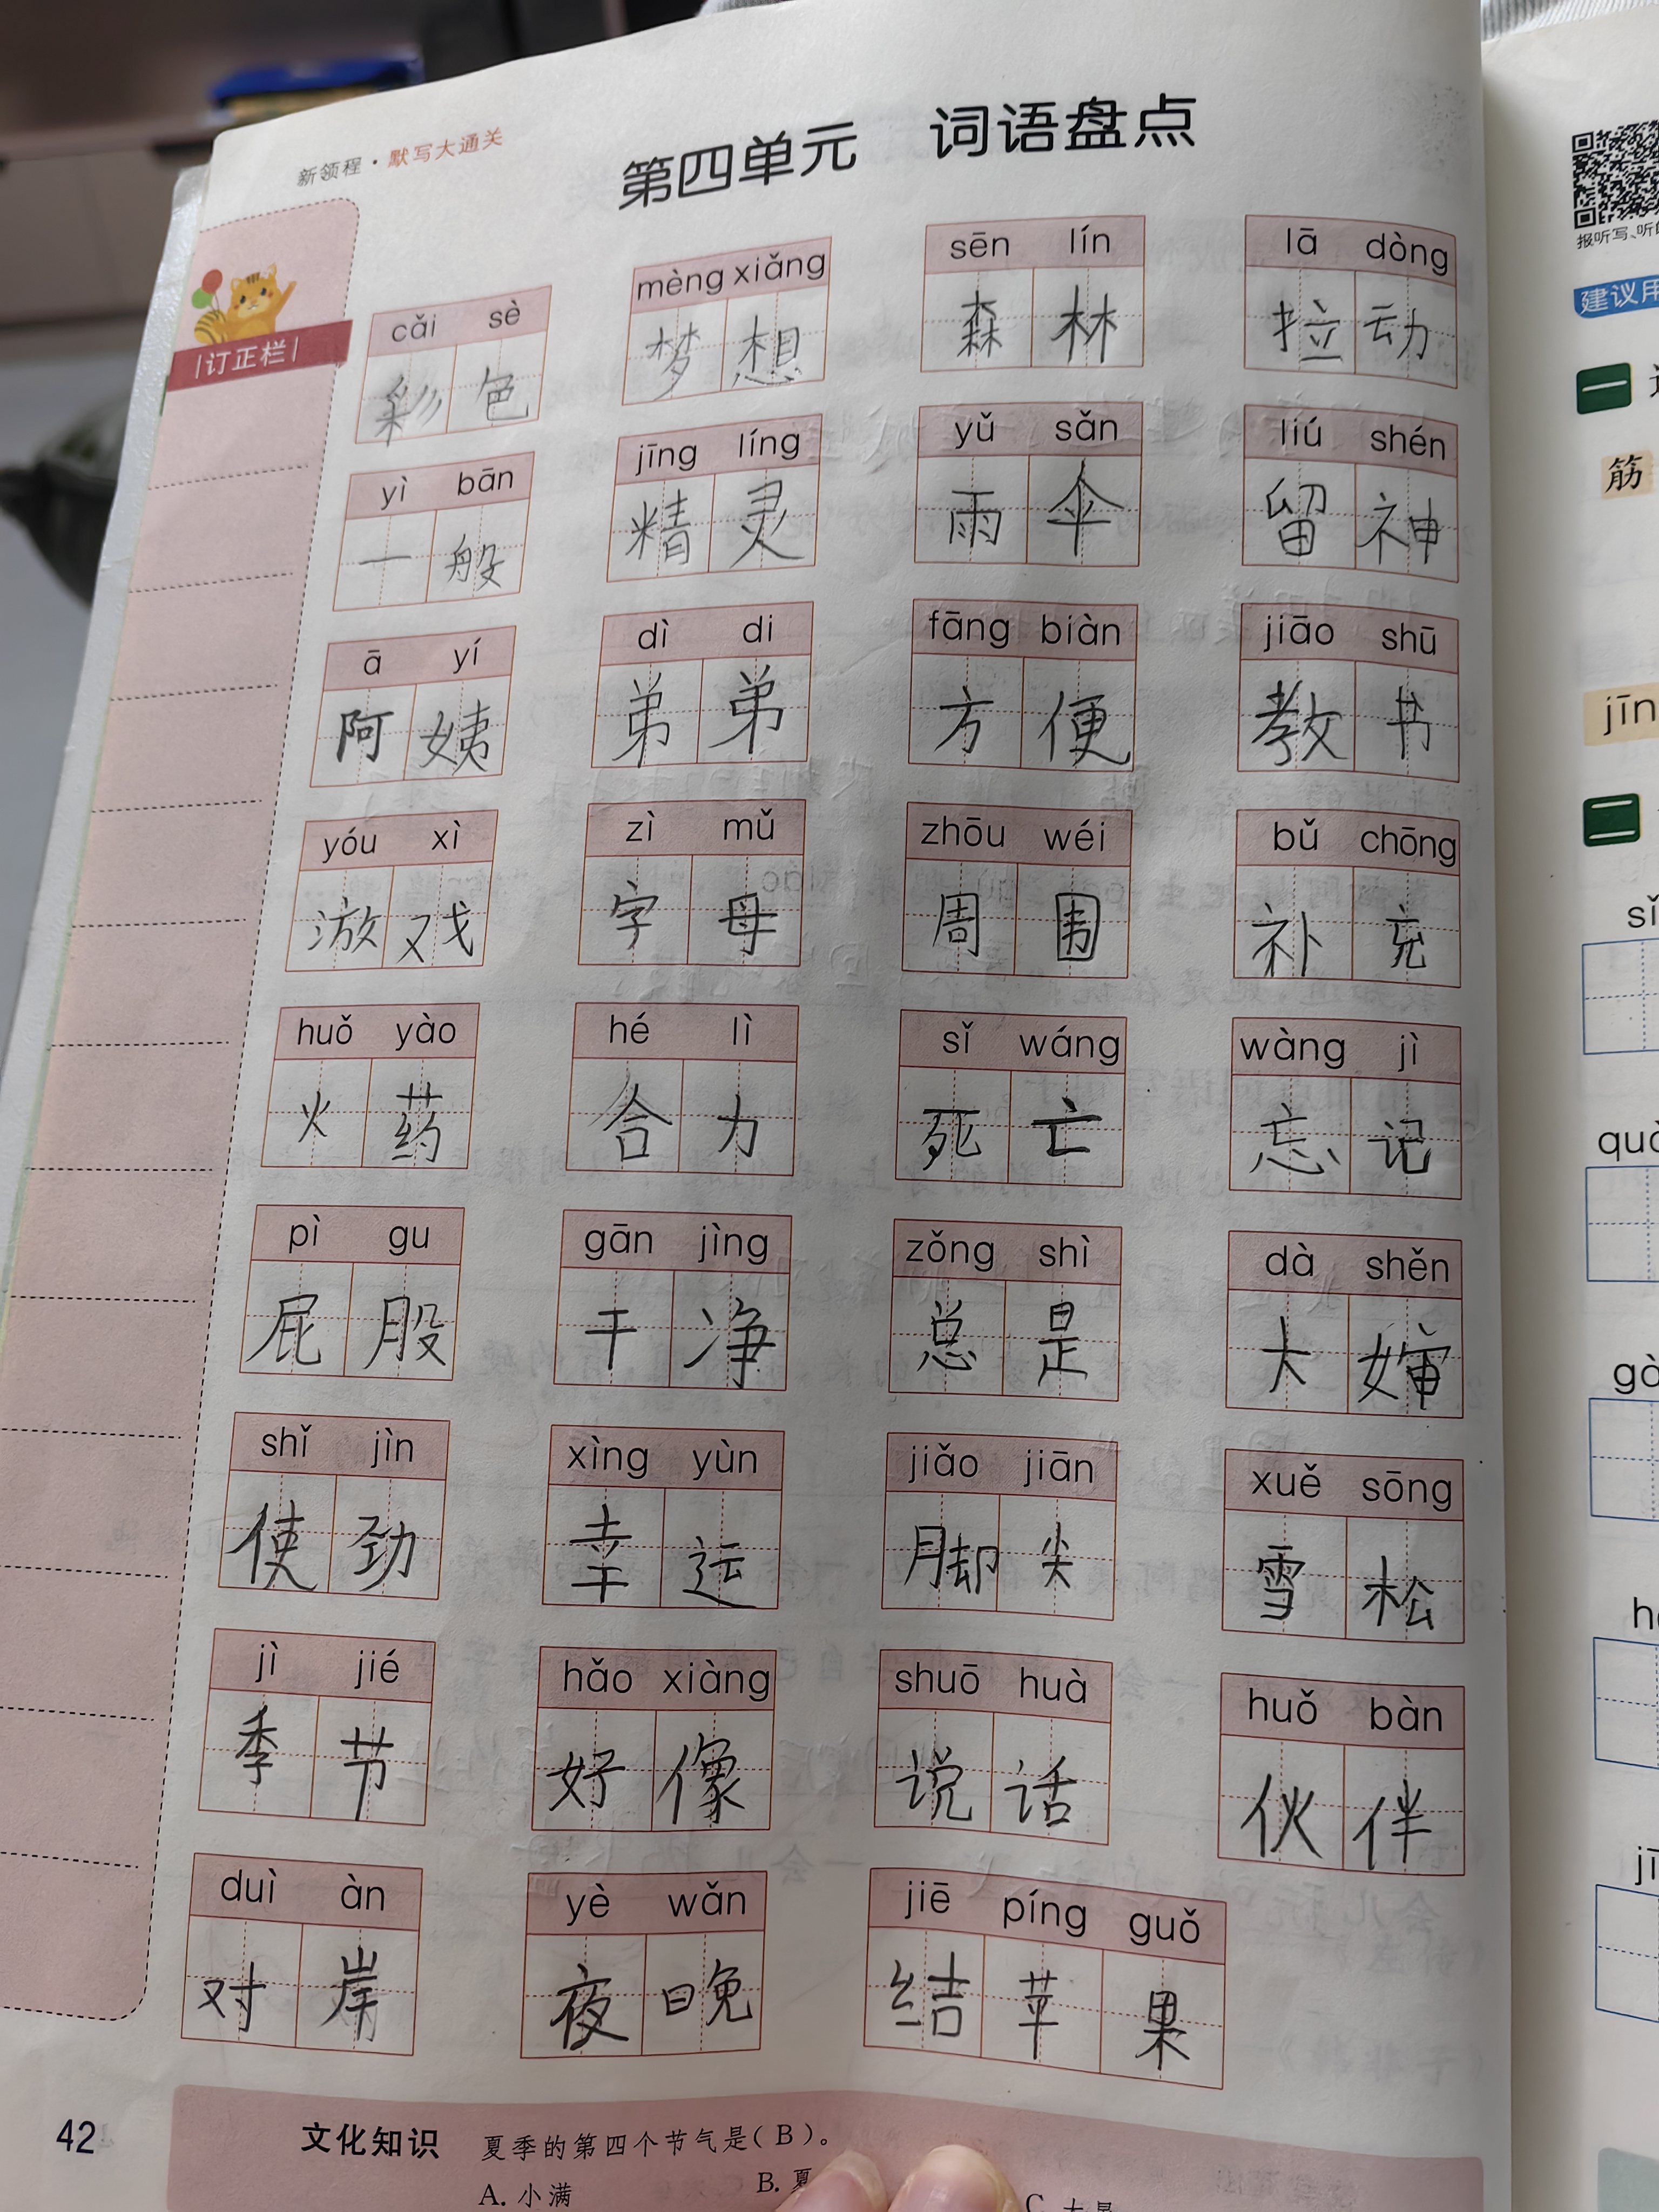 新领程·默写大通关
第四单元 词语盘点
订正栏
cǎi sè mèng xiǎng sēn lín lā dòng
彩色 梦想 森林 拉动
yì bān jīng líng yǔ sǎn liú shén
一般 精灵 雨伞 留神
ā yí dì di fāng biàn jiāo shū
阿姨 弟弟 方便 教书
yóu xì zì mǔ zhōu wéi bǔ chōng
游戏 字母 周围 补充
huǒ yào hé lì sǐ wáng wàng jì
火药 合力 死亡 忘记
pì gu gān jìng zǒng shì dà shěn
屁股 干净 总是 大婶
shǐ jìn xìng yùn jiǎo jiān xuě sōng
使劲 幸运 脚尖 雪松
jì jié hǎo xiàng shuō huà huǒ bàn
季节 好像 说话 伙伴
duì àn yè wǎn jiē píng guǒ
对岸 夜晚 结苹果
42
文化知识 夏季的第四个节气是(B)。
A. 小满 B. 夏 C.
建议
一
筋
jīn
二